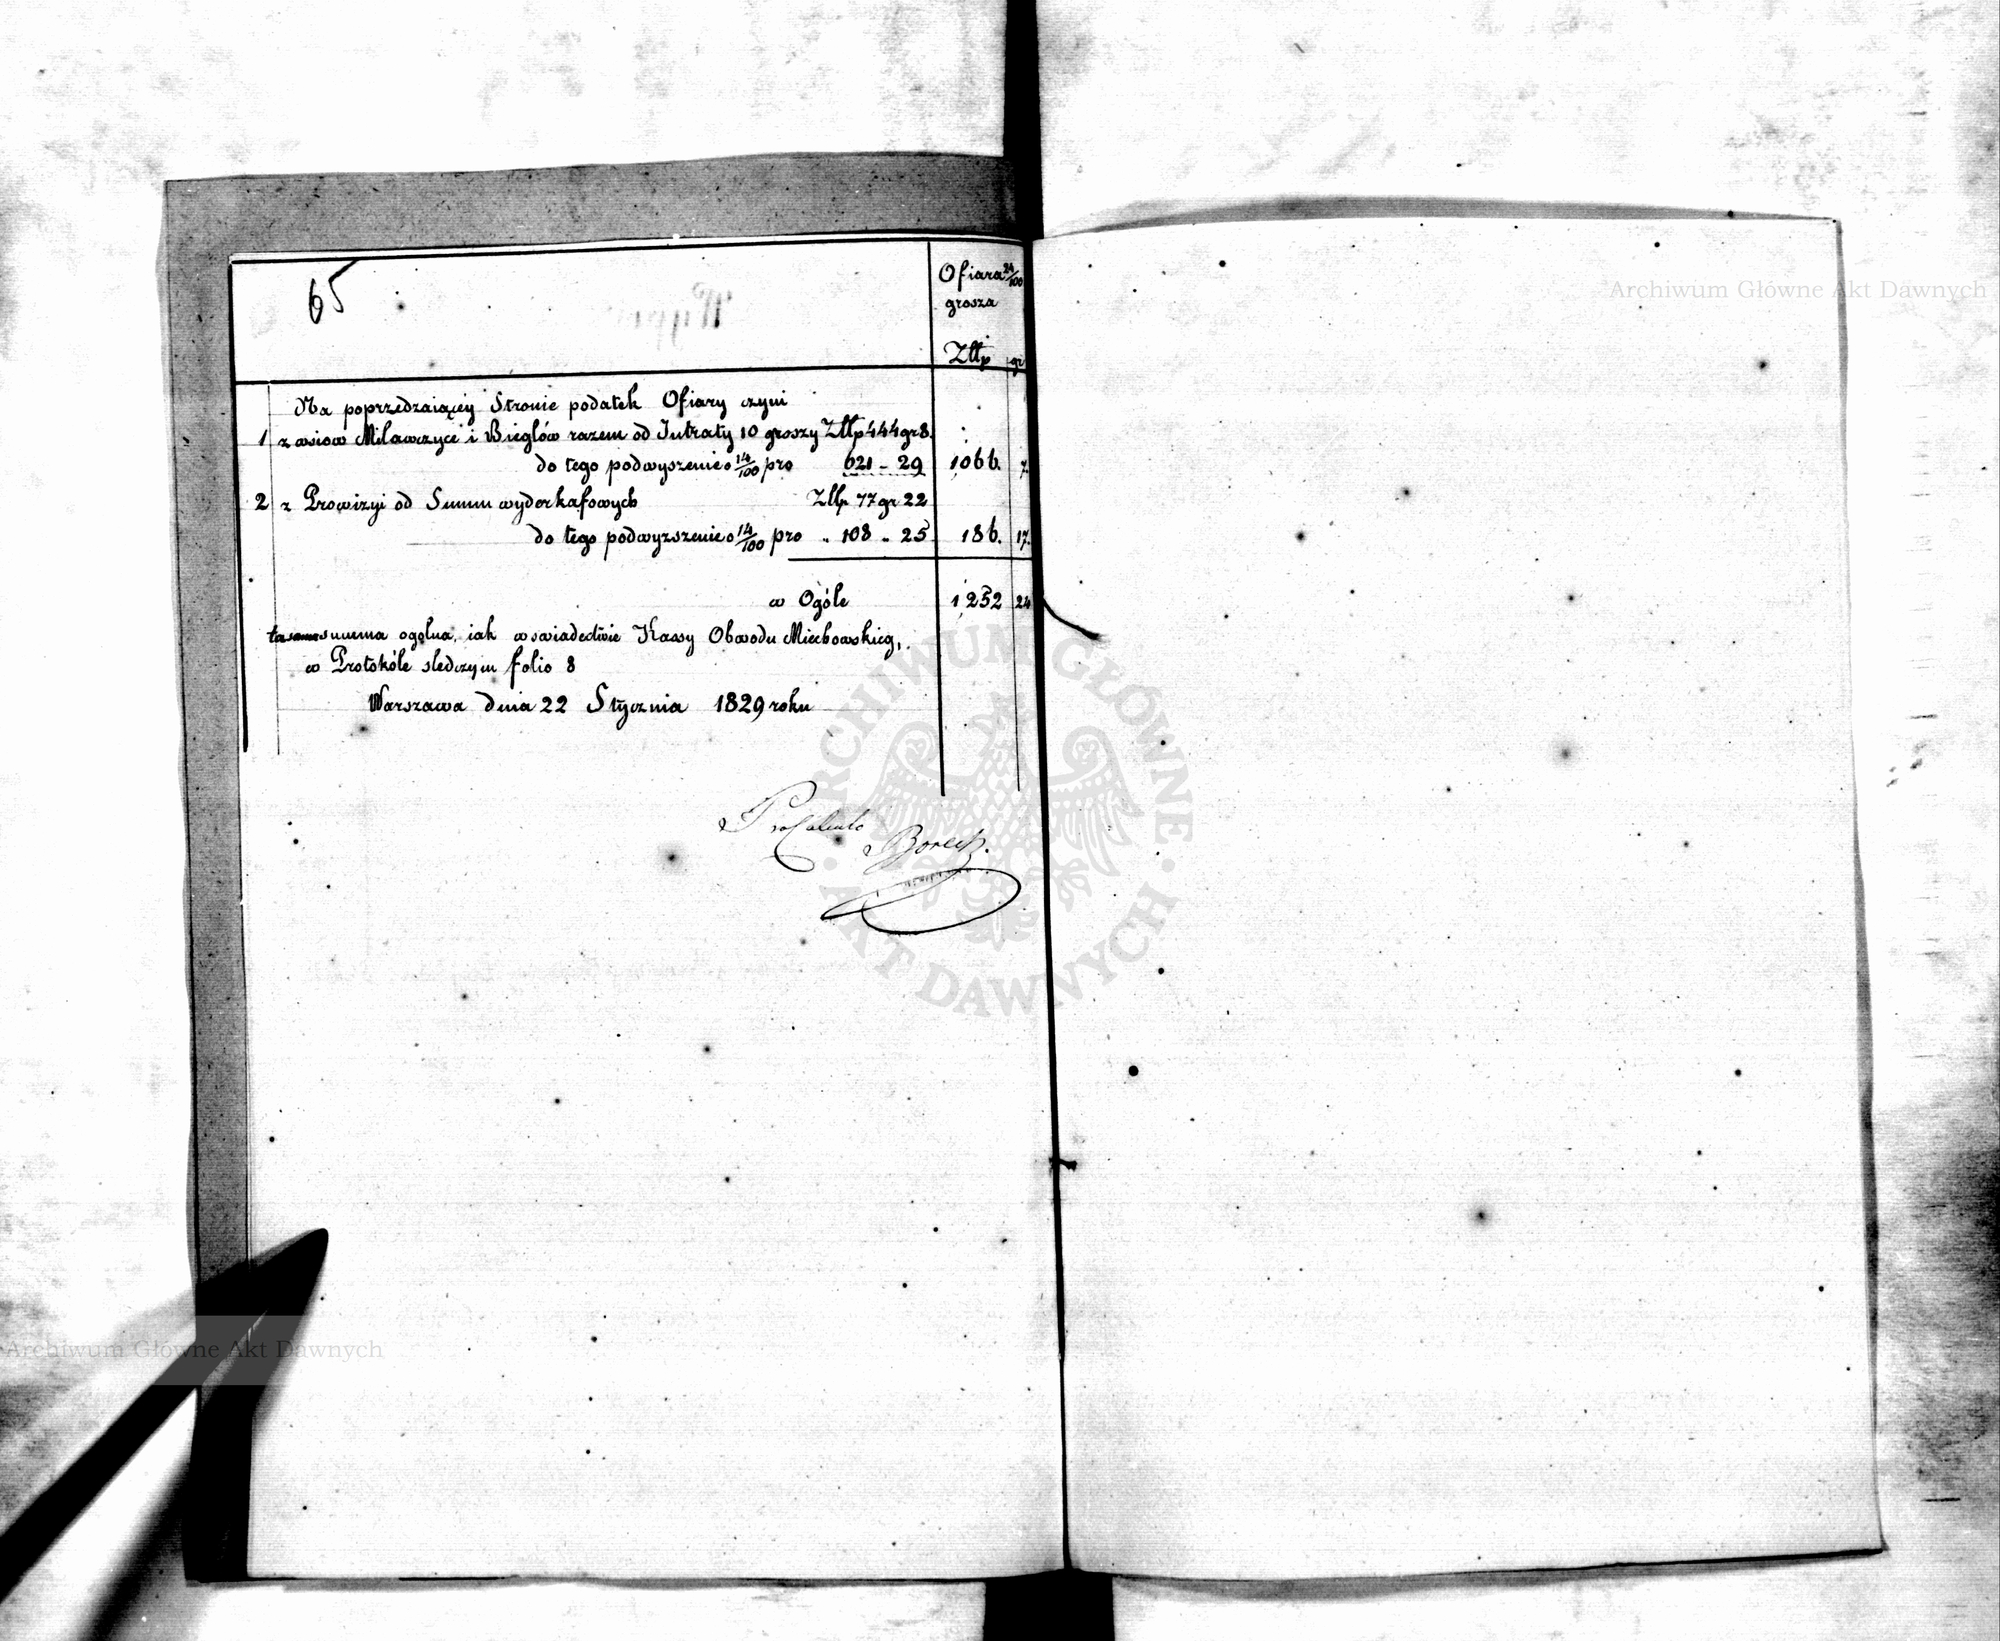 65
Ofiara 24/100
grosza
Złłp gr
Na poprzedzaiącéy Stronie podatek Ofiary czyni
1 z wsiow Milawczyce i Bieglów razem od Jntraty 10 groszy Złłp 444 gr 8.
do tego podwyszenie o 14/100 pro 621 - 29 1066. 7.
2 z Prowizyi od Summ wyderkafowych Złłp 77 gr 22
do tego podwyższenie o 14/100 pro „ 108 „ 25 186. 17.
w Ogóle 1252 24
ta sama summa ogolna, iak w swiadectwie Kassy Obwodu Miechowskieg,
w Protokóle sledczym folio 8
Warszawa dnia 22 Stycznia 1829 roku
Borecki
Archiwum Główne Akt Dawnych
ARCHIWUM GŁÓWNE · AKT DAWNYCH ·
Archiwum Główne Akt Dawnych